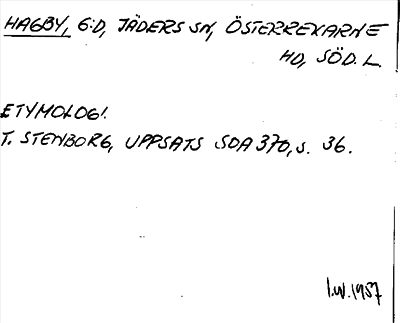 HAGBY, G:D, JÄDERS SN, ÖSTERREKARNE
HD, SÖD. L.
ETYMOLOGI.
T. STENBORG, UPPSATS SDA 370, S. 36.
I.W. 1957